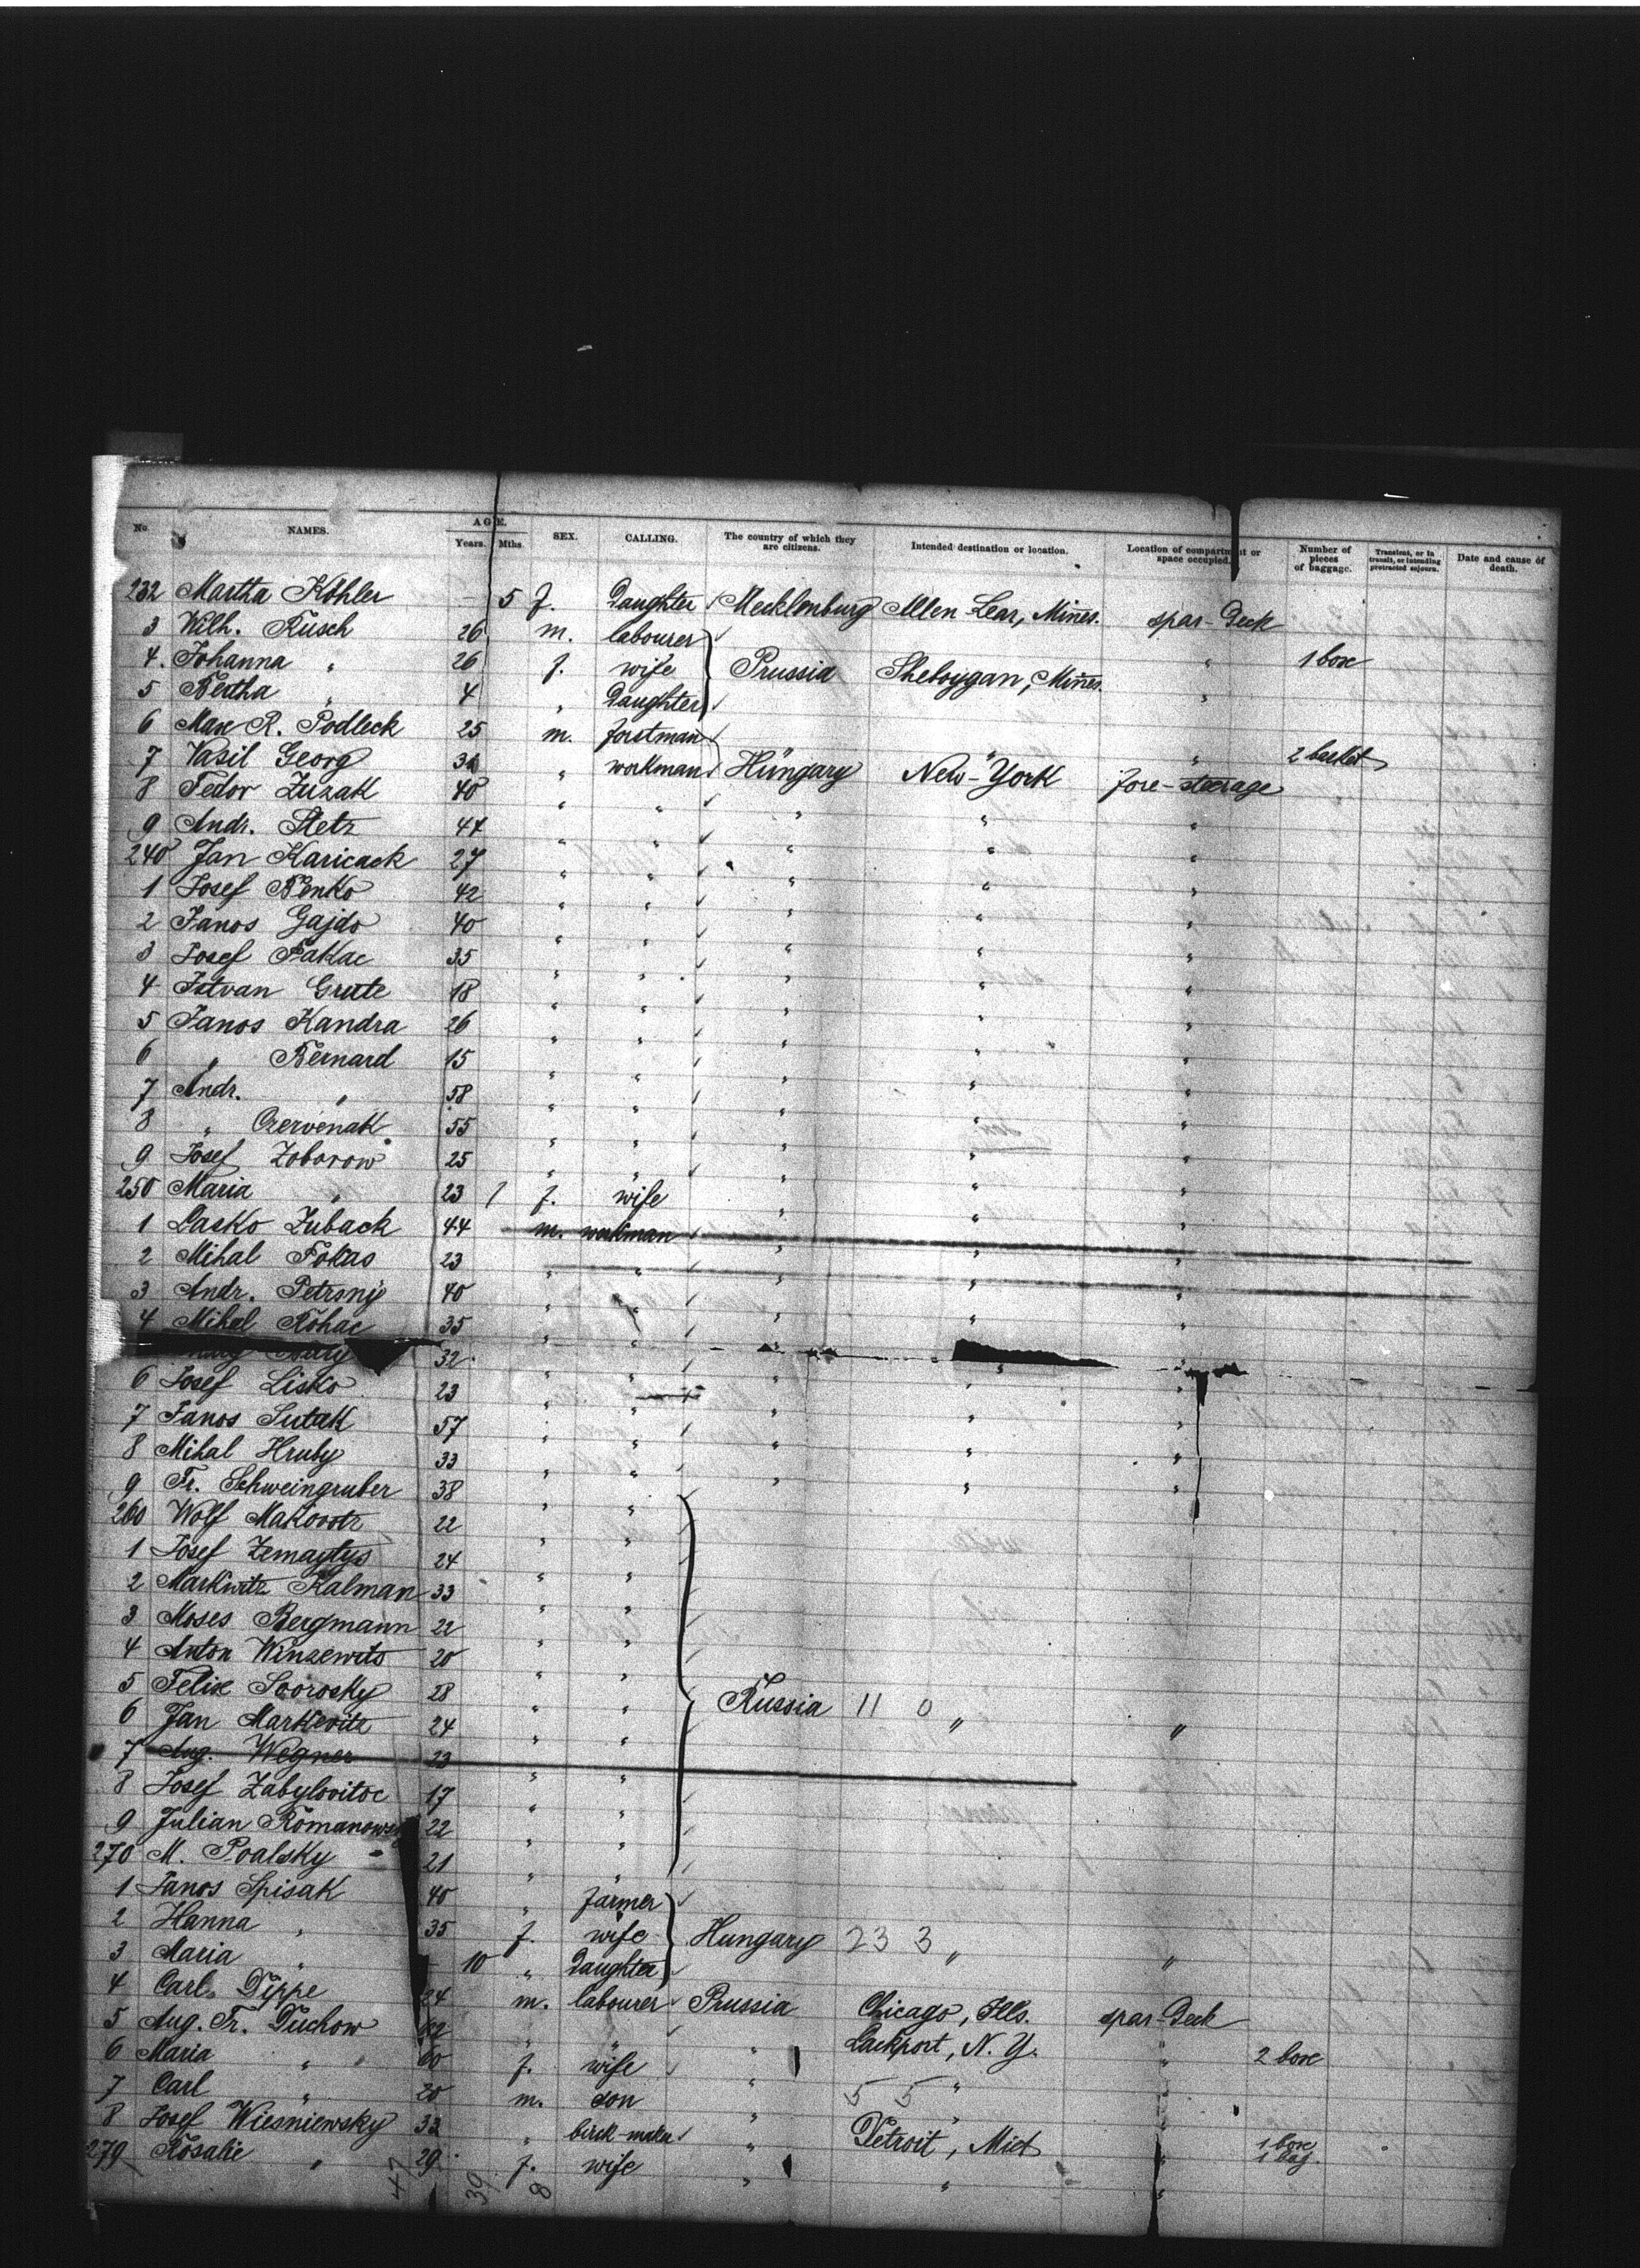 No. NAMES. AGE. Years. Mths. SEX. CALLING. The country of which they are citizens. Intended destination or location. Location of compartment or space occupied. Number of pieces of baggage. Transient, or in transit, or intending protracted sojourn. Date and cause of death.
232 Martha Köhler — 5 f. Daughter Mecklenburg Allen Lear, Mines. spar-Deck
3 Wilh. Rüsch 26 m. labourer
4. Johanna " 26 f. wife Prussia Sheboygan, Mines. " 1 box
5 Bertha " 4 " Daughter "
6 Max R. Podleck 25 m. forstman " " " 2 basket
7 Vasil Georg 3 " workman Hungary New-York fore-steerage
8 Fedor Zuzak 40 " " " " "
9 Andr. Stetz 44 " " " " "
240 Jan Karicack 27 " " " " "
1 Josef Benko 42 " " " " "
2 Janos Gajdo 40 " " " " "
3 Josef Pakac 35 " " " " "
4 Istvan Grute 18 " " " " "
5 Janos Kandra 26 " " " " "
6 " Bernard 15 " " " " "
7 Andr. " 58 " " " " "
8 " Czervenak 55 " " " " "
9 Josef Zoborow 25 " " " " "
250 Maria " 23 f. wife " " "
1 Lasko Zuback 44 m. workman " " "
2 Mihal Fokas 23 " " " " "
3 Andr. Petrsny 40 " " " " "
4 Mihal Rohac 35 " " " " "
32 " " " " "
6 Josef Lisko 23 " " " " "
7 Janos Sutak 57 " " " " "
8 Mihal Hruby 33 " " " " "
9 Fr. Schweingruber 38 " "
260 Wolf Makowtz 22 " "
1 Josef Zemaytys 24 " "
2 Markwitz Kalman 33 " "
3 Moses Bergmann 22 " "
4 Anton Winzewits 20 " "
5 Felix Soorosky 28 " " Russia 11 0 " "
6 Jan Markevitz 24 " "
7 Aug. Wegner 23 " "
8 Josef Zabylovitoc 17 " "
9 Julian Romanows 22 " "
270 M. Poalsky 21 " "
1 Janos Spisak 40 " farmer
2 Hanna " 35 f. wife Hungary 23 3 " "
3 Maria " — 10 " Daughter
4 Carl Dippe 24 m. labourer Prussia Chicago, Ills. spar-Deck
5 Aug. Fr. Duchow " " " Lackport, N.Y. "
6 Maria " 60 f. wife " " " 2 box
7 Carl " 20 m. son " 5 5 "
8 Josef Wiesniewsky 33 " birck-maker " Detroit, Mich " 1 box 1 bag.
279 Rosalie " 29 f. wife " " "
47 39 8